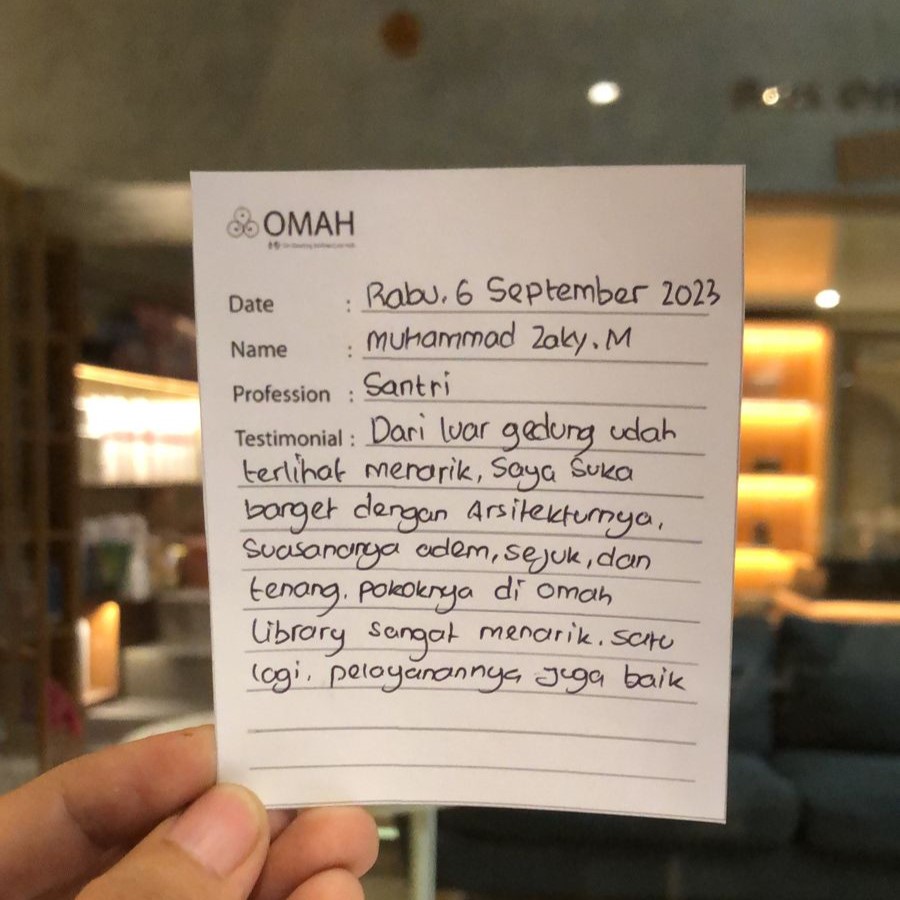 OMAH
Date : Rabu, 6 September 2023
Name : Muhammad Zaky. M
Profession : Santri
Testimonial : Dari luar gedung udah
terlihat menarik, Saya Suka
banget dengan Arsitekturnya,
Suasananya adem, sejuk, dan
tenang. pokoknya di omah
library sangat menarik. satu
lagi, pelayanannya juga baik